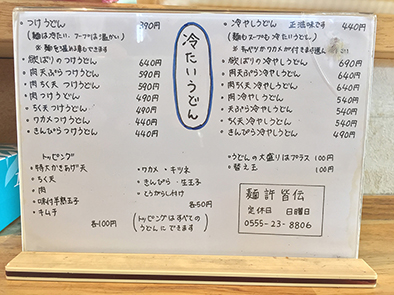 冷たいうどん
・つけうどん 390円
(麺は冷たい、スープは温かい)
※麺を温め事もできます
・欲ばりのつけうどん 640円
・肉天ぷらつけうどん 590円
・肉ちく天つけうどん 590円
・肉つけうどん 490円
・ちく天つけうどん 490円
・ワカメつけうどん 440円
・きんぴらつけうどん 440円
・冷やしうどん 正油味です 440円
(麺もスープも冷たいうどん)
※キャベツかワカメが
・欲ばり冷やしうどん 690円
・肉天ぷら冷やしうどん 640円
・肉ちく天冷やしうどん 640円
・肉冷やしうどん 540円
・天ぷら冷やしうどん 540円
・ちく天冷やしうどん 540円
・きんぴら冷やしうどん 490円
トッピング
・特大かきあげ天
・ちく天
・肉
・味付半熟玉子
・キムチ
各100円
・ワカメ ・キツネ
・きんぴら ・生玉子
・とうがらし付け
各50円
(トッピングはすべてのうどんにできます)
・うどんの大盛りはプラス 100円
・替え玉 100円
麺許皆伝
定休日 日曜日
0555-23-8806